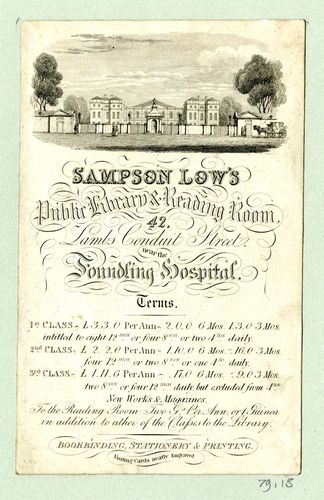 SAMPSON LOW'S
Public Library & Reading Room,
42.
Lambs Conduit Street,
near the
Foundling Hospital.
Terms.
1ST CLASS - £3.3.0 Per Ann - 2.0.0 6 Mos. 1.3.0 3 Mos.
intitled to eight 12mos or four 8vos or two 4tos daily.
2ND CLASS - £2.2.0 Per Ann - 1.10.0 6 Mos. - 16.0 3 Mos.
four 12mos or two 8vos or one 4to daily.
3RD CLASS - £1.11.6 Per Ann - .17.0 6 Mos. - 9.0 3 Mos.
two 8vos or four 12mos daily but excluded from 4tos
New Works & Magazines.
To the Reading Room Two Gs Per Ann. or 1 Guinea
in addition to either of the Classes to the Library.
BOOKBINDING, STATIONERY & PRINTING.
Visiting Cards neatly Engraved
79.18